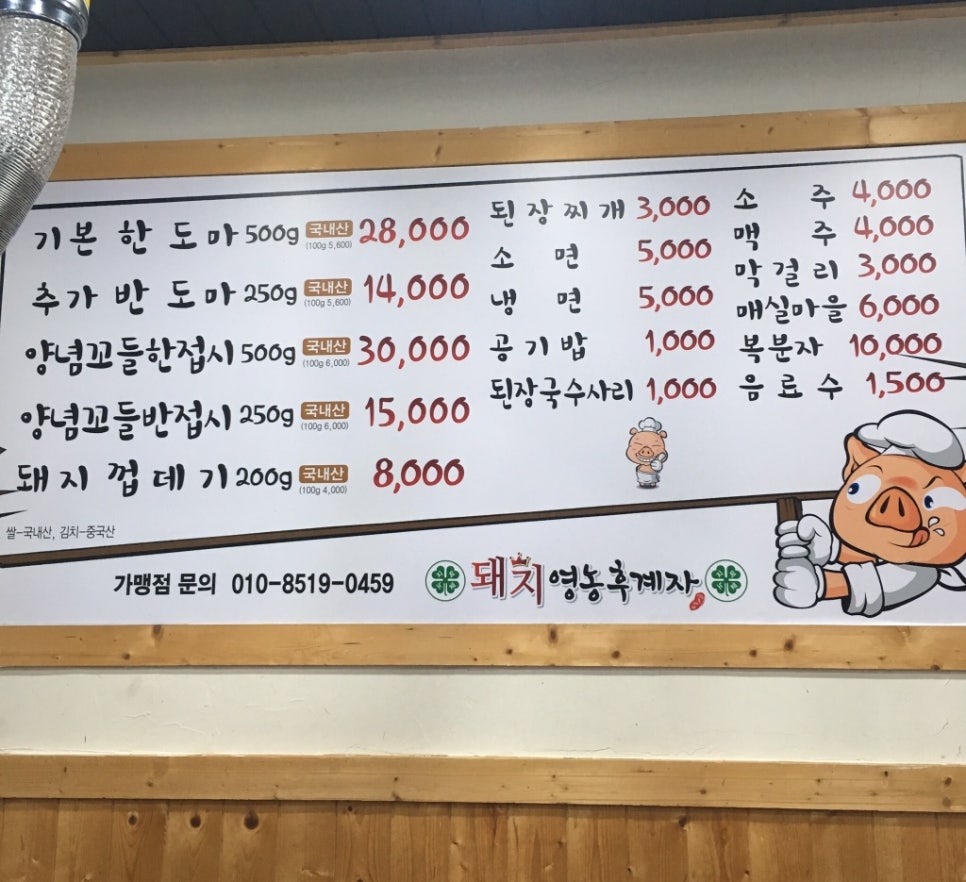 기본 한 도마 500g 국내산 (100g 5,600) 28,000
추가 반 도마 250g 국내산 (100g 5,600) 14,000
양념꼬들한접시 500g 국내산 (100g 6,000) 30,000
양념꼬들반접시 250g 국내산 (100g 6,000) 15,000
돼지 껍데기 200g 국내산 (100g 4,000) 8,000
쌀-국내산, 김치-중국산
된장찌개 3,000
소면 5,000
냉면 5,000
공기밥 1,000
된장국수사리 1,000
소주 4,000
맥주 4,000
막걸리 3,000
매실마을 6,000
복분자 10,000
음료수 1,500
가맹점 문의 010-8519-0459
돼지영농후계자